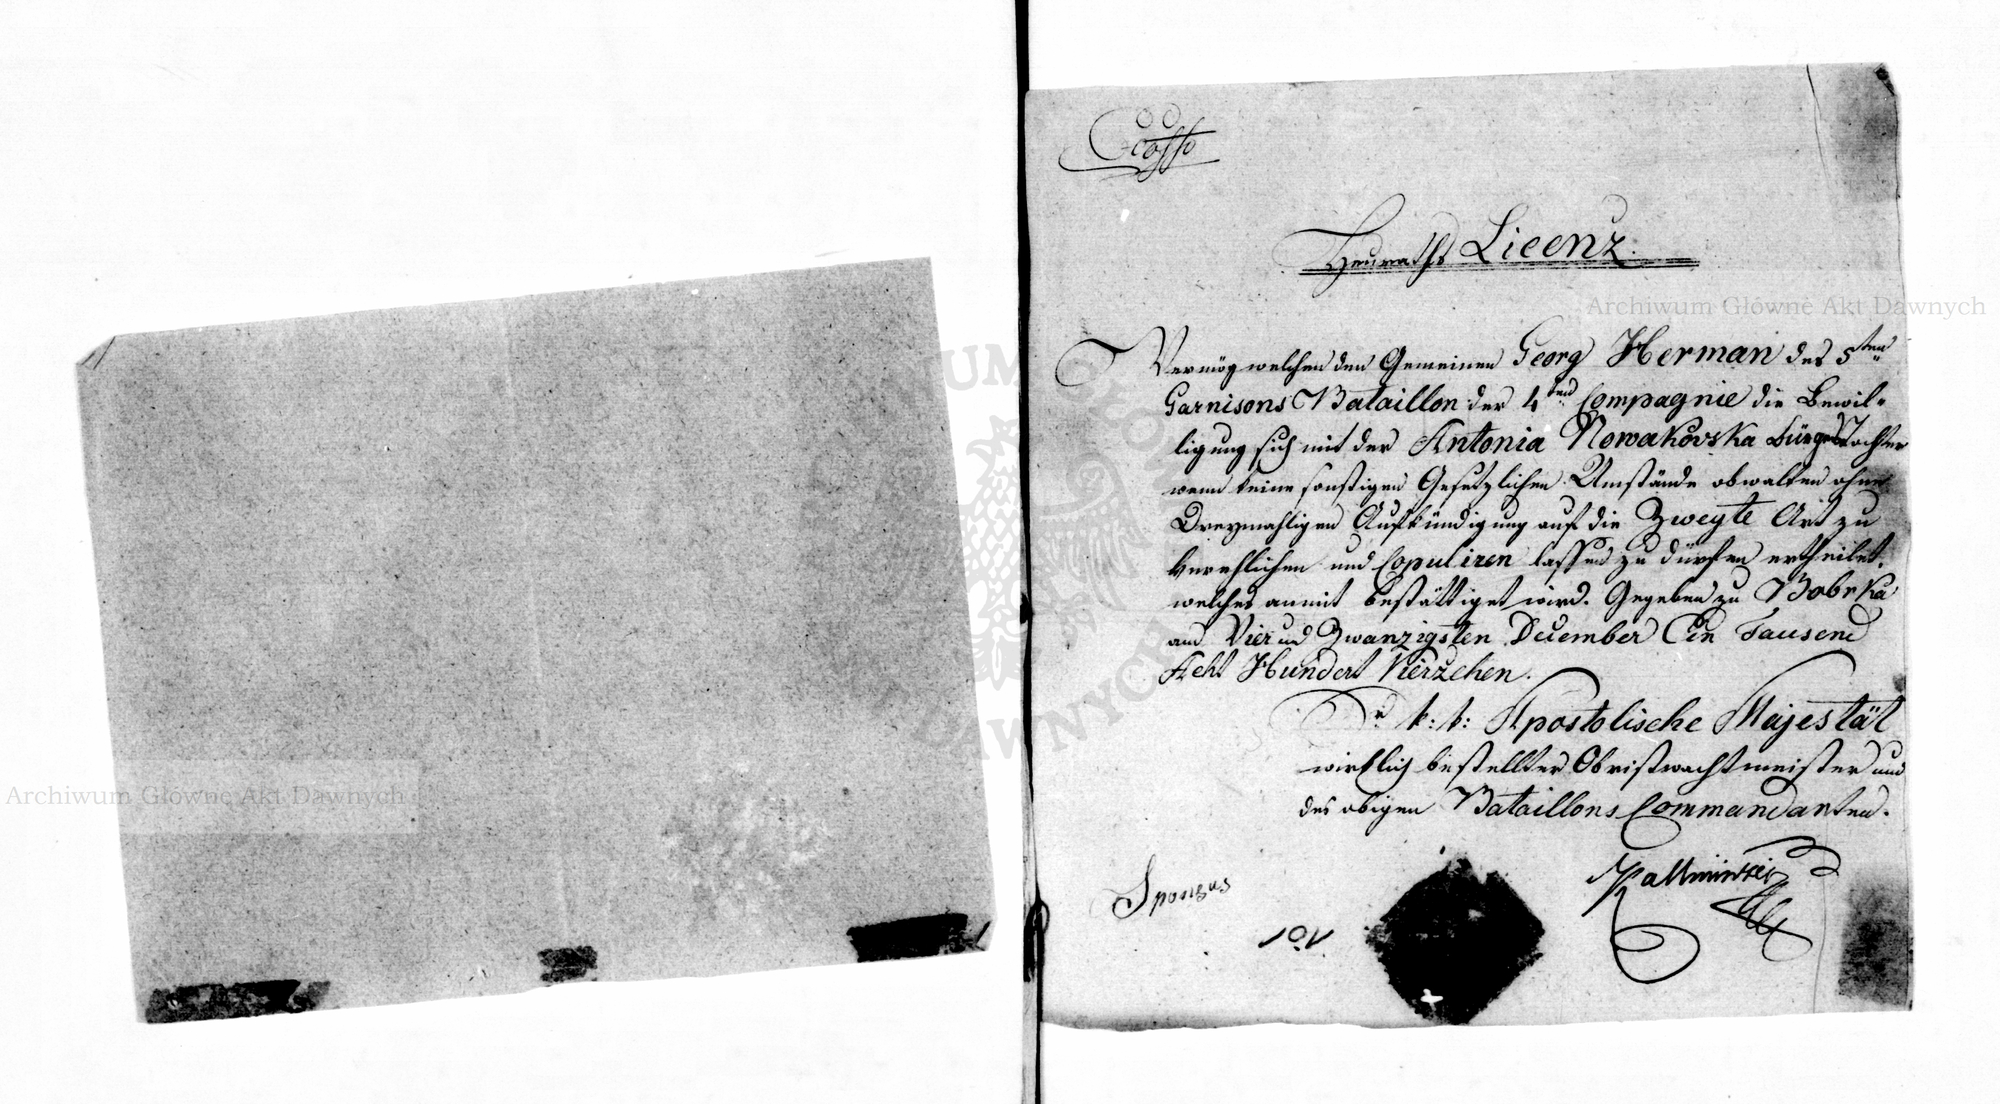 Heuraths Licenz.
Vermög welchen den Gemeinen Georg Herman des 5ten
Garnisons Bataillon der 4ten Compagnie die Bewil-
ligung sich mit der Antonia Nowakovska bürgers Tochter
wenn keine sonstigen Gesetzlichen Umstände obwalten ohne
Dreymahligen Aufkündigung auf die Zweyte Art zu
verehlichen und Copuliren lassen zu dürfen ertheilet.
welches anmit bestättiget wird. Gegeben zu Bobrka
am Vier und Zwanzigsten December Ein Tausend
Acht Hundert Vierzehen.
Sr k: k: Apostolische Majestät
wirklich bestellter Obristwachtmeister und
des obigen Bataillons Commandanten.
Sponsus
101
Archiwum Główne Akt Dawnych
Archiwum Główne Akt Dawnych